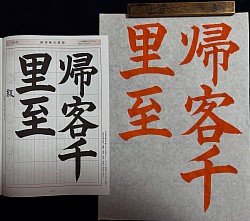 帰客千
里至
帰客千
里至